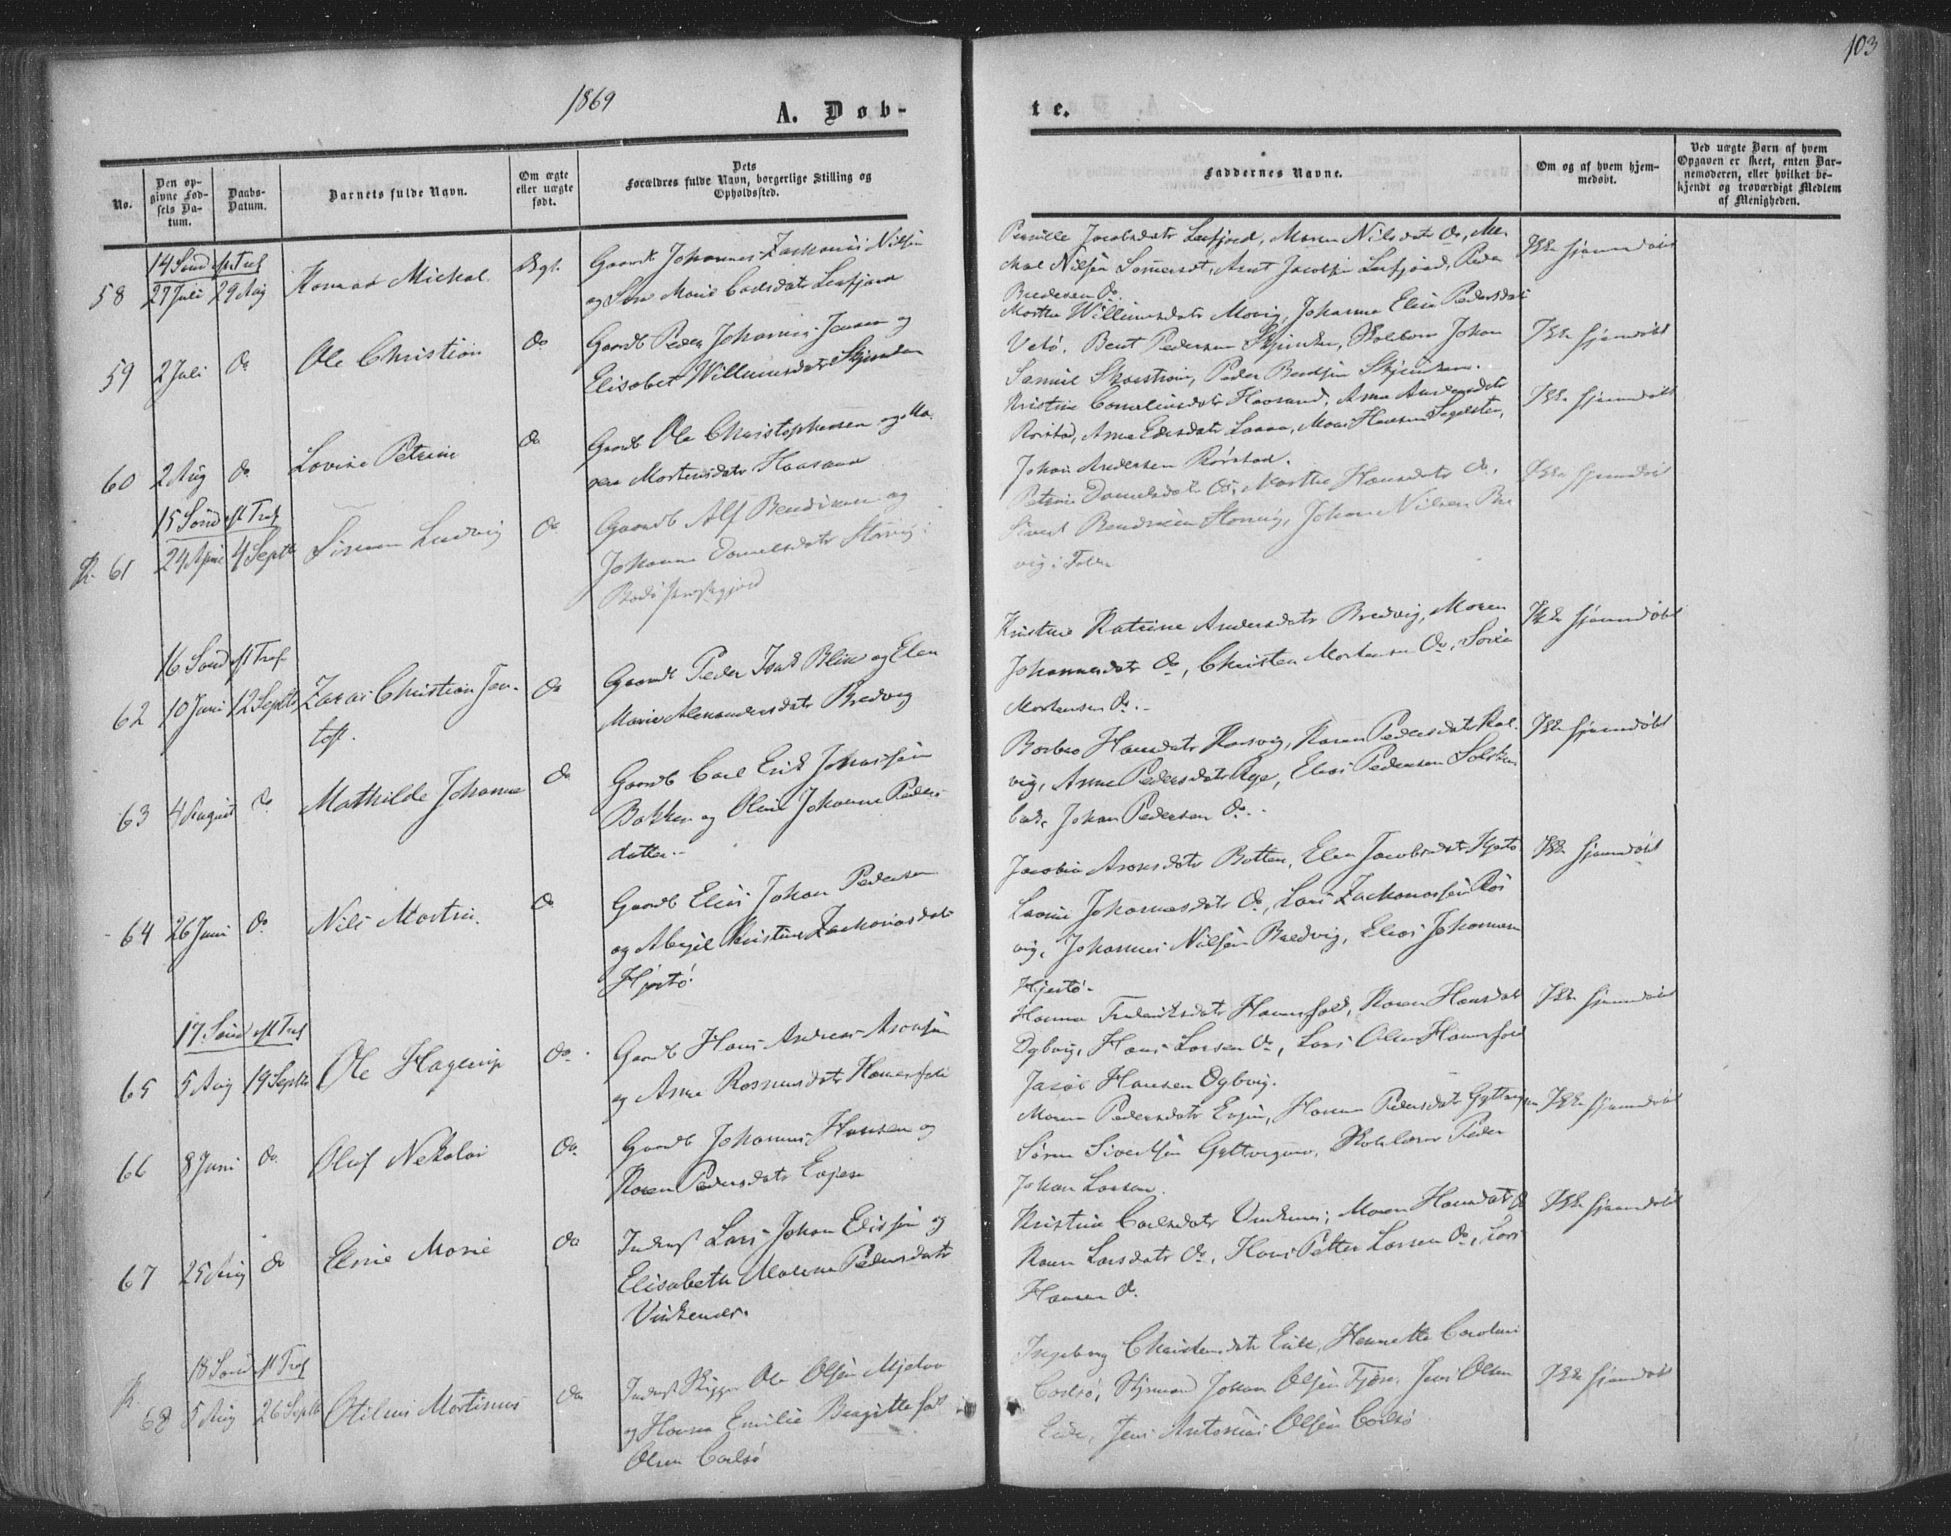 103
1869
A. Døb-
te.
No.
Den op-
givne Fød-
sels Da-
tum.
Daabs-
Datum.
Barnets fulde Navn.
Om ægte
eller uægte
født.
Dets
Forældres fulde Navn, borgerlige Stilling og
Opholdssted.
Faddernes Navne.
Om og af hvem hjem-
medøbt.
Ved uægte Børn af hvem
Opgaven er skeet, enten Bar-
nemoderen, eller hvilket be-
kjendt og troværdigt Medlem
af Menigheden.
14 Sønd eft Tref
58 27 Juli 29 Aug Konrad Michal Ægt.
Gaardb Johannes Zachariæ Nilsen
Marie Carlsdatr Leifjord
Pernille Jacobsdatr Leifjord, Maren Nilsdatr Do, Mi-
kal Nilsen Somerset, Arnt Jacobsen Leifjord, Peder
Bredesen Do
Ikke hjemmedøbt
59 2 Juli Do Ole Christian Do
Gaardb Peder Johannes Jensen og
Elisabet Willumsdatr Skjenken
Marthe Willumsdatr Movig, Johanna Elisa Pedersdatr
Vetø, Bent Pedersen Skjenken, Johan
Samuel Peder Bendsen
Ikke hjemmedøbt
60 2 Aug Do Lovise Petrine Do
Gaardb Ole Christophersen og Ma-
ren Mortensdatr Haasand
Kristine Corneliusdatr Haasand, Anna Andersdatr
Rørstad, Anna Mons Hansen
Johan Andersen Rørstad.
Ikke hjemmedøbt
15 Sønd eft Tref
61 24 April 4 Septb Simon Ludvig Do
Gaardb Alf Bendixen og
Johanna Danielsdatr Storvig i
Bodø Præstegjeld
Petrine Danielsdatr Do, Marthe Hansdatr Do,
Sivert Bendixen Storvig, Johan Nilsen Bre
vig i Folden
Ikke hjemmedøbt
16 Sønd eft Tref
62 10 Juni 12 Septb Zakas Christian Jen-
toft. Do
Gaardb Peder Isak Blix og Elen
Marie Alexandersdatr Bredvig
Kristine Katrine Andersdatr Bredvig, Maren
Johannesdatr Do, Christen Mortensen Do, Søren
Mortensen Do.
Ikke hjemmedøbt
63 4 August Do Mathilde Johanna Do
Gaardb Carl Erik Johnsen
Bakken og Oline Johanna Peders-
datter.
Barbro Hansdatr Karsvig, Karen Pedersdatr Kal-
vig, Anne Pedersdatr Røje, Elias Pedersen Solsten
Johan Pedersen Do.
Ikke hjemmedøbt
64 26 Juni Do Nils Martin. Do
Gaardb Elias Johan Pedersen
og Abigel Kristine Zachariasdatr
Hjertø
Jacobia Aronsdatr Botten, Elen Jacobsdatr Hjertø
Johannesdatr Do, Lars Zachariassen Røs
vig, Johannes Nilsen Bredvig, Elias Johannesen
Hjertø.
Ikke hjemmedøbt
17. Sønd eft Tref
65 5 Aug 19 Septb Ole Hagerup Do
Gaardb Hans Andreas Aronsen
og Anna Rasmusdatr Hamerfald
Hanna Frederiksdatr Hamerfald, Karen Hansdatr
Ogbvig, Hans Larsen Do, Lars Olsen Hamerfald
Jacob Hansen Ogbvig.
Ikke hjemmedøbt
66 8 Juni Do Oluf Nekolai Do
Gaardb Johannes Hansen og
Karen Pedersdatr Evjen
Maren Pedersdatr Evjen, Hanna Pedersdatr
Søren Sivertsen Peder
Johan Larsen.
Ikke hjemmedøbt
67 25 Aug Do Elsie Marie Do
Inderst Lars Johan Elissen og
Elisabeth Malena Pedersdatr
Vinkenes.
Kristine Carlsdatr Vinkenes, Maren Hansdatr Do
Karen Larsdatr Do, Hans Petter Larsen Do, Lars
Hansen Do.
Ikke hjemmedøbt
18 Sønd eft Tref
68 5 Aug 26 Septb Otilius Martinus Do
Inderst Skipper Ole Olsen Mjelva
og Hanna Emilie Birgitte
Olsen Carlsø
Ingeborg Christensdatr Eide, Hennette Caroline
Carlsø, Styrmand Johan Olsen Fjære, Jens Olsen
Eide, Jens Antonius Olsen Carlsø
Ikke hjemmedøbt